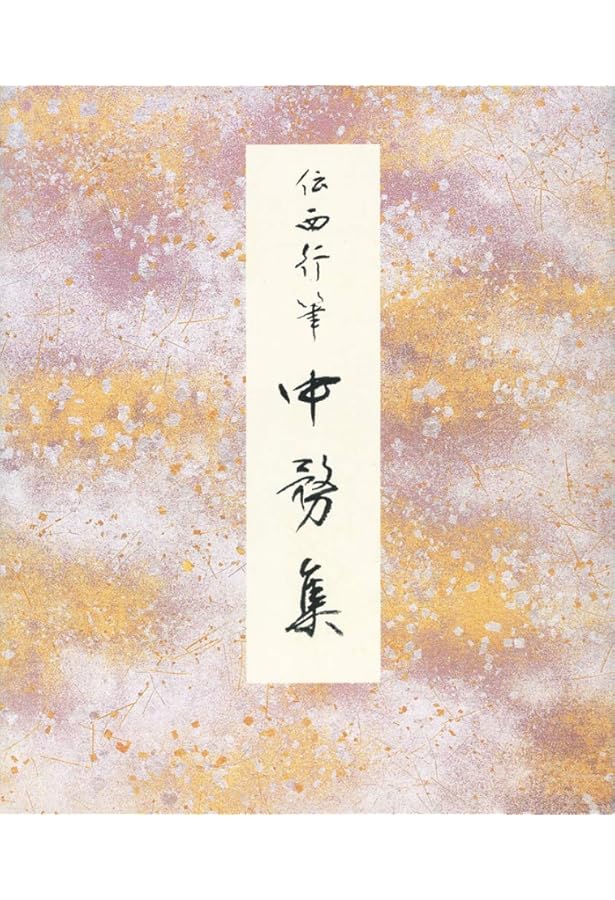 伝西行筆中務集